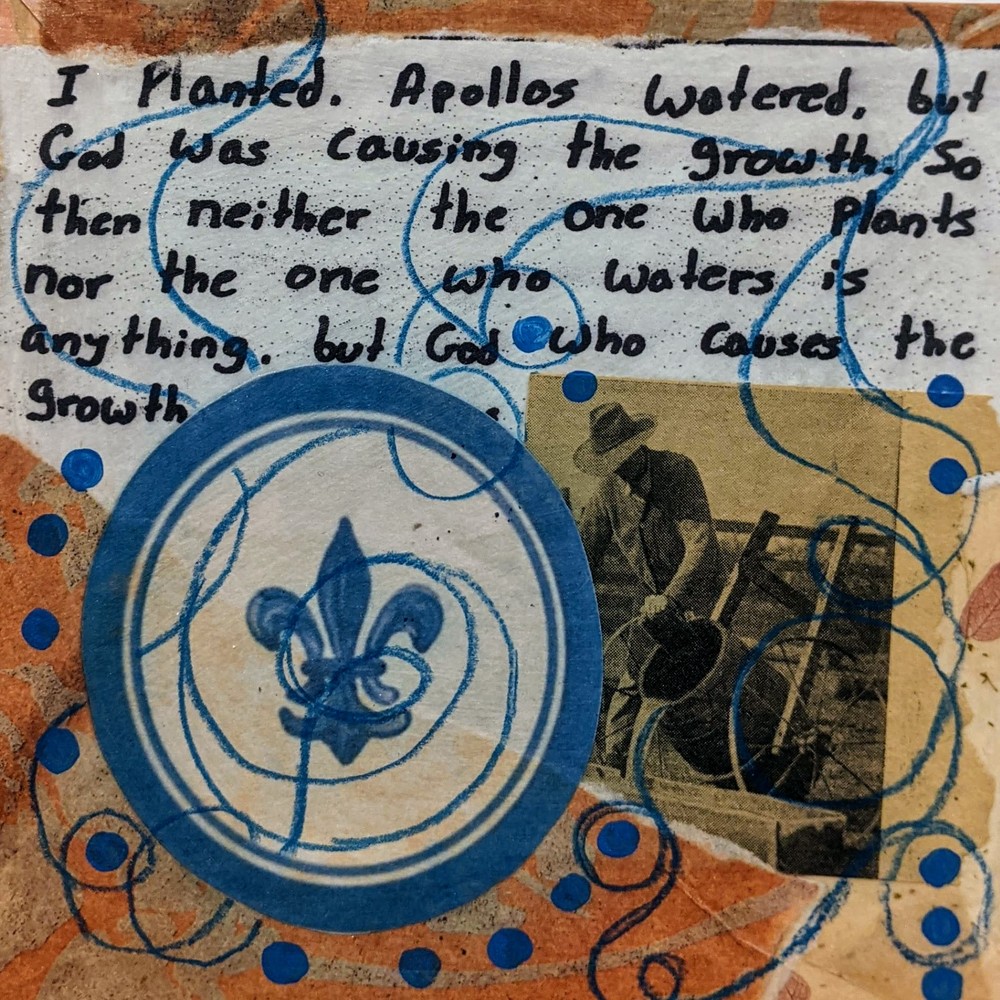 I Planted. Apollos watered, but
God was causing the growth. So
then neither the one who plants
nor the one who waters is
anything. but God who causes the
growth.